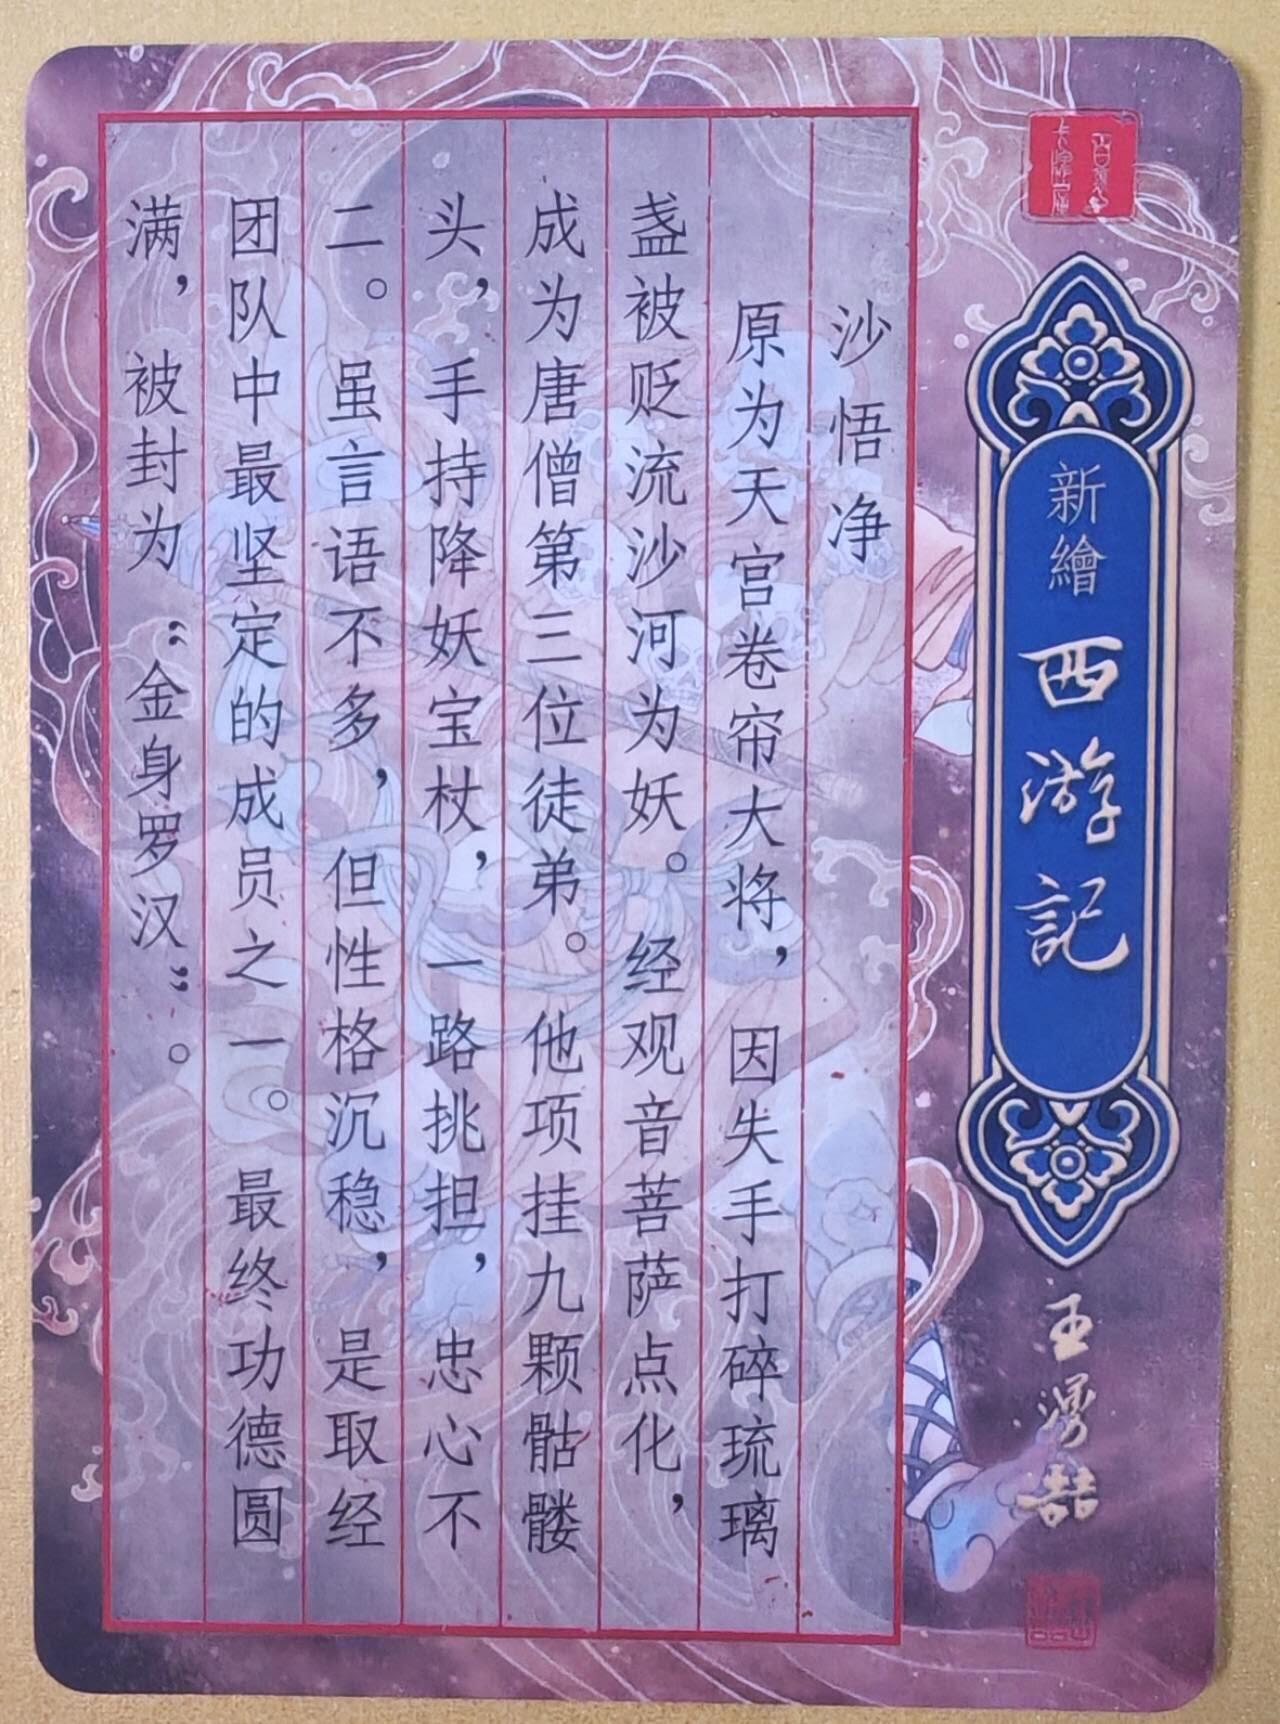 新繪西游記
王喆
沙悟净
原为天宫卷帘大将，因失手打碎琉璃
盏被贬流沙河为妖。经观音菩萨点化，
成为唐僧第三位徒弟。他项挂九颗骷髅
头，手持降妖宝杖，一路挑担，忠心不
二。虽言语不多，但性格沉稳，是取经
团队中最坚定的成员之一。最终功德圆
满，被封为“金身罗汉”。